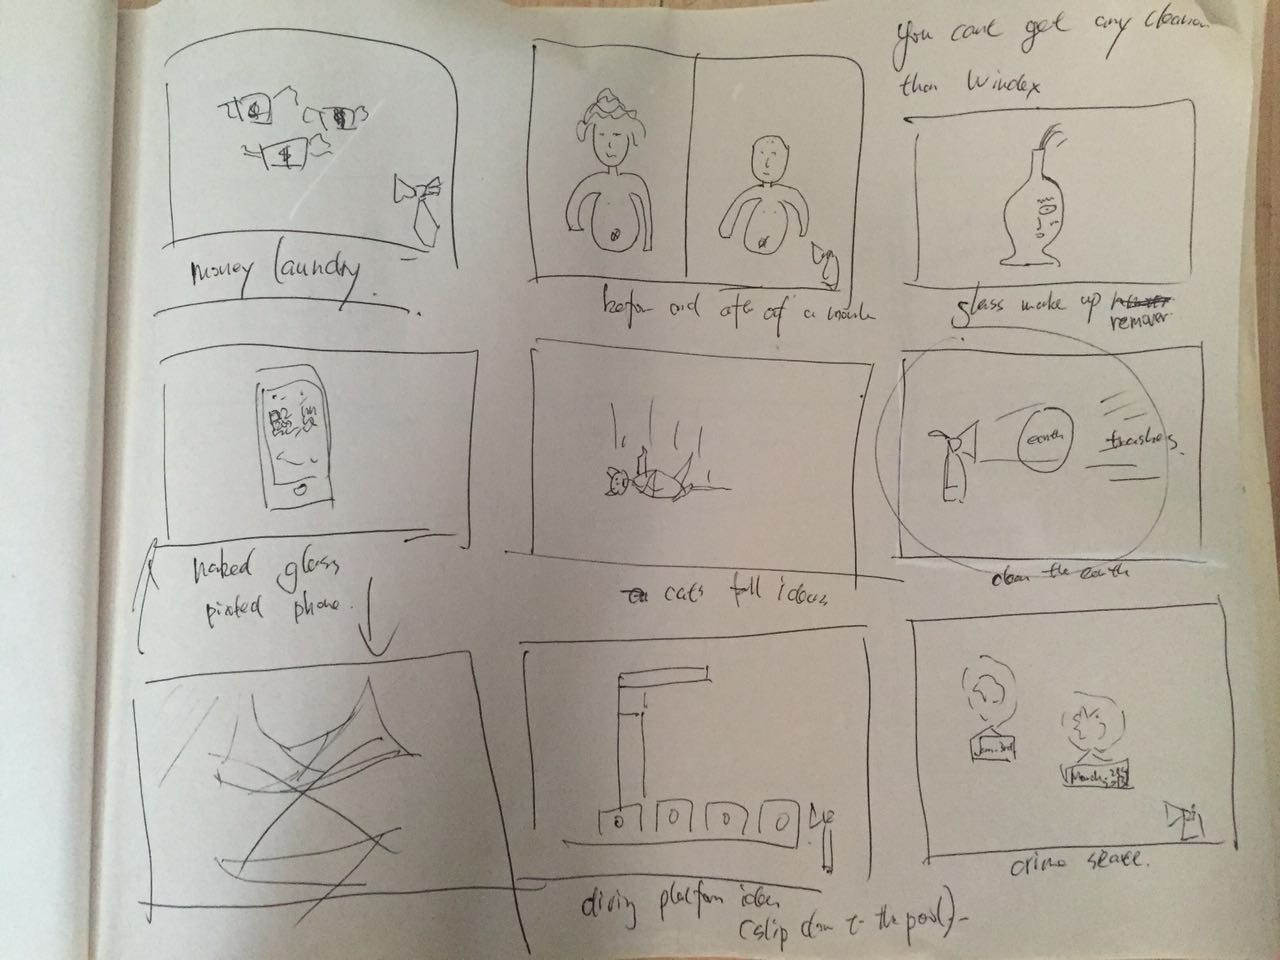 You cant get any cleaner
than Windex
$ $ $
money laundry.
before and after of a
glass make up
remover
earth
trashes.
naked glass
pirated phone.
cats fall ideas
clean the earth
Jan-3rd
March
diving platform idea
(slip down to the pool)-
crime scene.